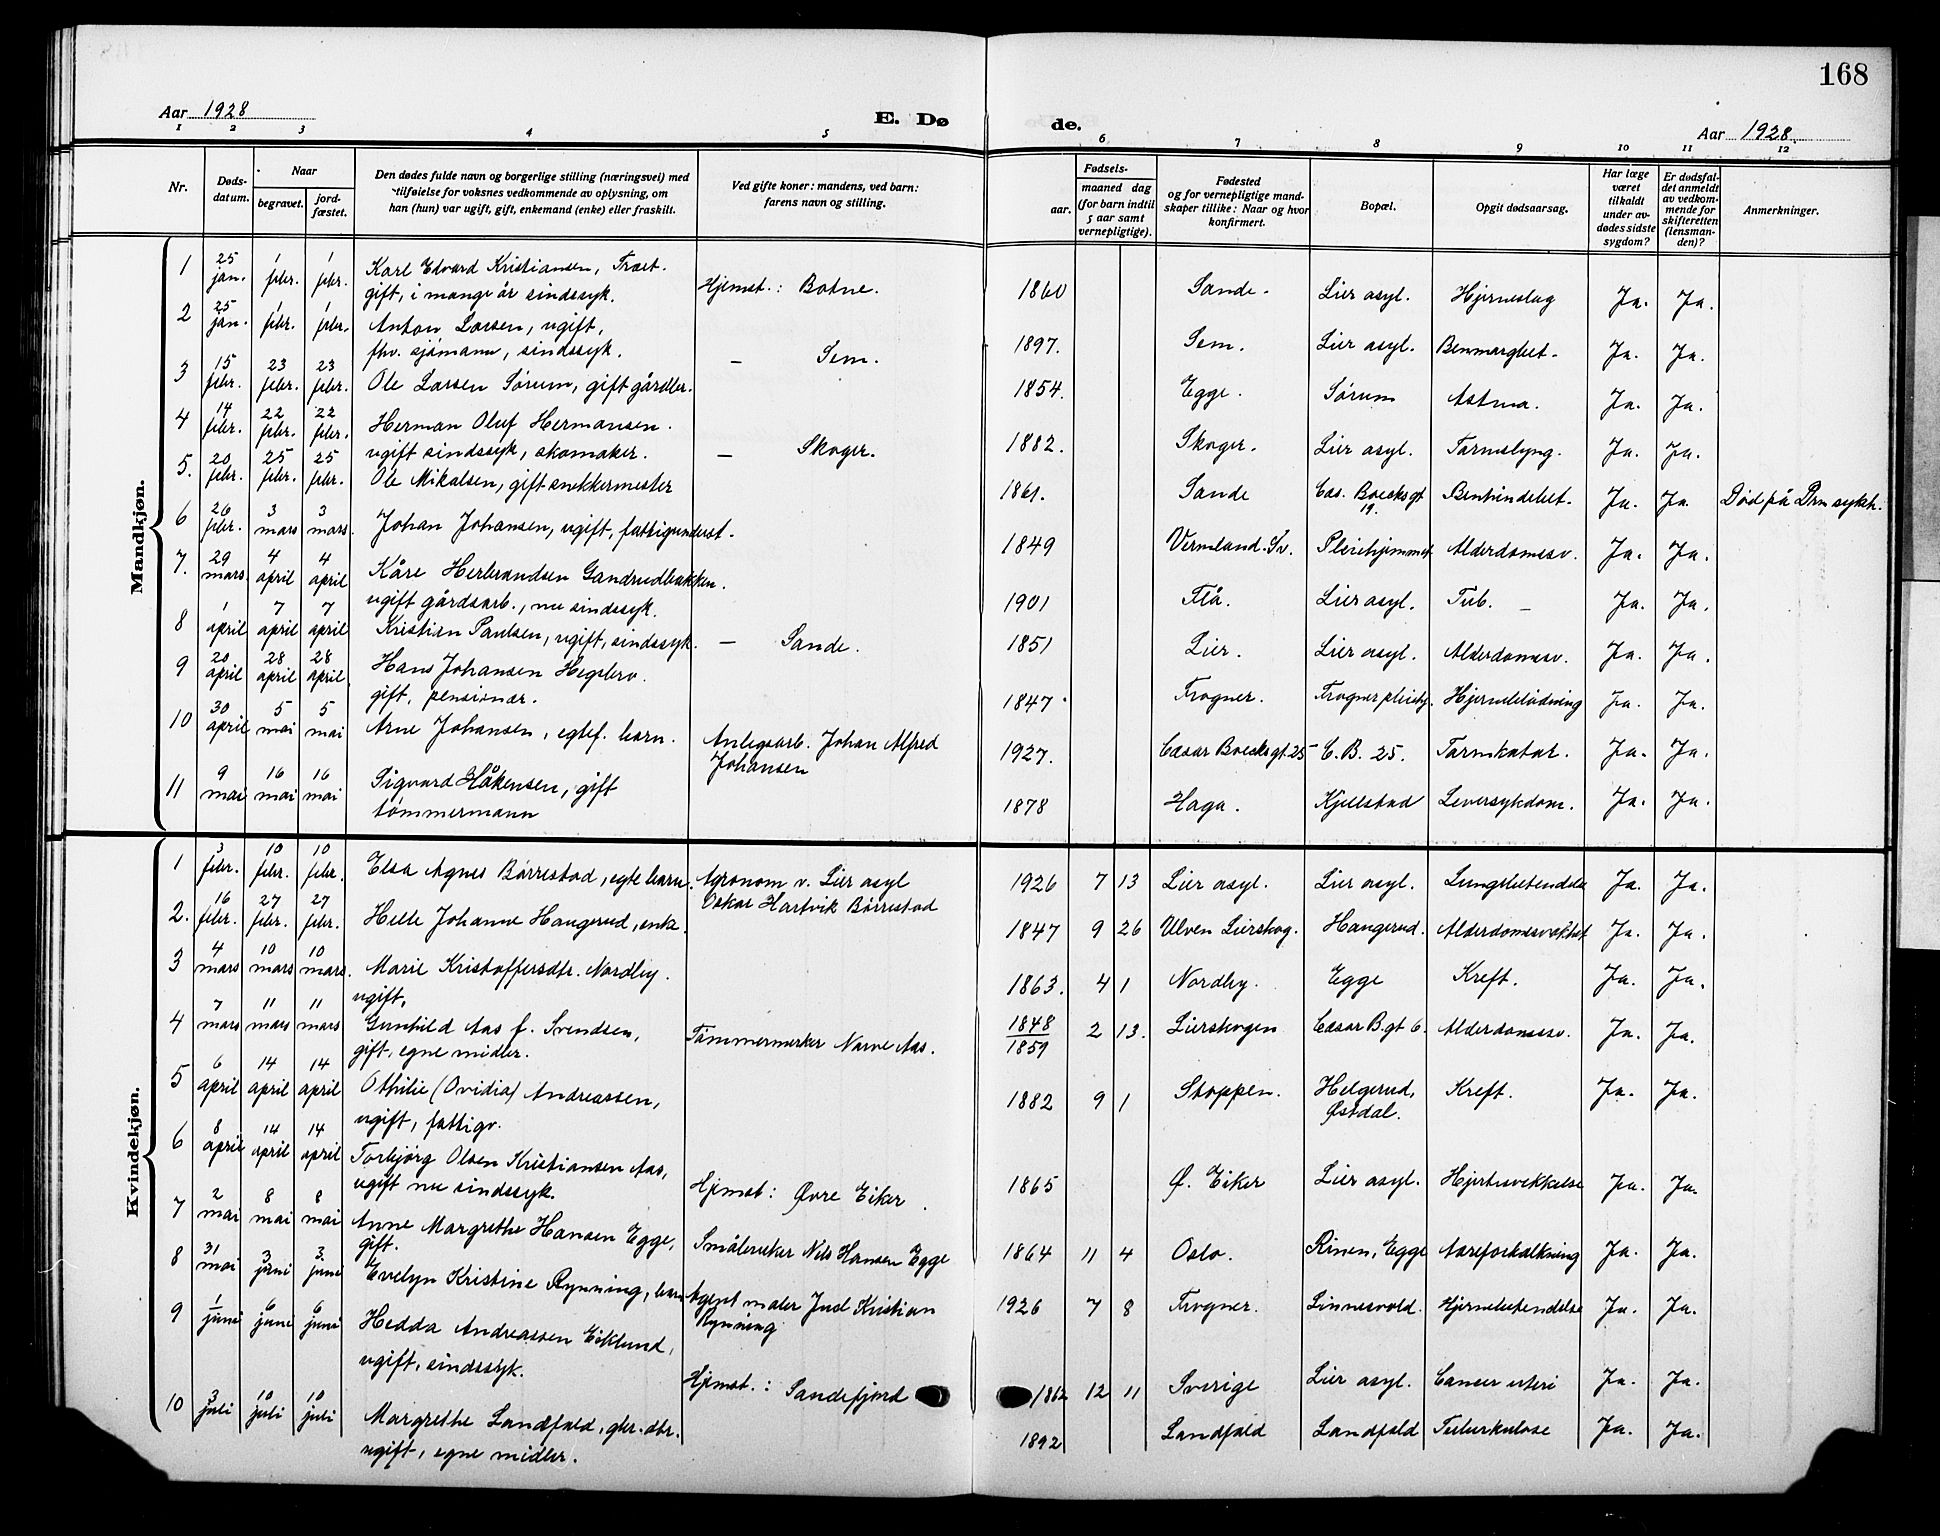 168
Aar 1928
E. Dø
de.
Aar 1928
1 2 3 4 5 6 7 8 9 10 11 12
Nr.
Døds-
datum.
Naar
begravet.
jord-
fæstet.
Den dødes fulde navn og borgerlige stilling (næringsvei) med
tilføielse for voksnes vedkommende av oplysning, om
han (hun) var ugift, gift, enkemand (enke) eller fraskilt.
Ved gifte koner: mandens, ved barn:
farens navn og stilling.
Fødsels-
aar.
maaned dag
(for barn indtil
5 aar samt
vernepligtige).
Fødested
og for vernepligtige mand-
skaper tillike: Naar og hvor
konfirmert.
Bopæl.
Opgit dødsaarsag.
Har læge
været
tilkaldt
under av-
dødes sidste
sygdom?
Er dødsfal-
det anmeldt
av vedkom-
mende for
skifteretten
(lensman-
den)?
Anmerkninger.
Mandkjøn.
1 25 jan. 1 febr. 1 febr. Karl Edvard Kristiansen,
gift, i mange år sindssyk. Hjemst.: Botne. 1860 Sande. Lier asyl. Hjerneslag Ja. Ja.
2 25 jan. 1 febr. 1 febr. Anton Larsen, ugift,
fhv. sjømann, sindssyk. — Sem. 1897. Sem. Lier asyl. Ja. Ja.
3 15 febr. 23 febr. 23 febr. Ole Larsen Sørum, gift gårdbr. 1854. Egge. Sørum Astma. Ja. Ja.
4 14 febr. 22 febr. 22 febr. Herman Oluf Hermansen.
ugift sindssyk, skomaker. — Skoger. 1882. Skoger. Lier asyl. Tarmslyng. Ja. Ja.
5. 20 febr. 25 febr. 25 febr. Ole Mikalsen, gift snekkermester 1861. Sande Cæs. Boecksgt 19. Ja. Ja. Død på Drm sykh.
6 26 febr. 3 mars 3 mars. Johan Johansen, ugift, fattigunderst. 1849 Vermland. Sv. Pleiehjemmet Alderdomssv. Ja. Ja.
7. 29 mars. 4 april 4 april Kåre Herbrandsen Gandrudbakken.
ugift gårdsarb., nu sindssyk. 1901 Flå. Lier asyl. Tub. — Ja. Ja.
8 1 april 7 april 7 april Kristian Paulsen, ugift, sindssyk. — Sande. 1851 Lier. Lier asyl. Alderdomssv. Ja. Ja.
9 20 april 28 april 28 april Hans Johansen Hegsbro.
gift, pensionær. 1847. Frogner. Frogner pleiehj. Hjerneblødning Ja. Ja.
10 30 april 5 mai 5 mai Arne Johansen, egtef. barn. Anlegsarb. Johan Alfred
Johansen 1927. Cæsar Boecksgt. 25 C. B. 25. Tarmkatar. Ja. Ja.
11 9 mai 16 mai 16 mai Sigvard Håkensen, gift
tømmermann 1878 Haga. Kjellstad Leversykdom. Ja. Ja.
Kvindekjøn.
1 3 febr. 10 febr. 10 febr. Elsa Agnes Børrestad, egte barn. Agronom v. Lier asyl
Oskar Hartvik Børrestad 1926 7 13 Lier asyl. Lier asyl. Lungebetendelse Ja. Ja.
2. 16 febr. 27 febr. 27 febr. Helle Johanne Haugerud, enke. 1847 9 26 Ulven Lierskog. Haugerud. Alderdomssvakhet Ja. Ja.
3 4 mars 10 mars 10 mars. Marie Kristoffersdtr. Nordby.
ugift, 1863. 4 1 Nordby. Egge Kreft. Ja. Ja.
4 7 mars 11 mars 11 mars Gunhild Aas f. Svendsen,
gift, egne midler. Tømmermerker Narve Aas. 1848 1859 2 13. Lierskogen Cæsar B.gt 6. Alderdomssv. Ja. Ja.
5 6 april 14 april 14 april Othilie (Ovidia) Andreassen,
ugift, fattigv. 1882 9 1 Stoppen. Helgerud, Østdal. Kreft. Ja. Ja.
6 8 april 14 april 14 april Torbjørg Olsen Kristiansen Aas,
ugift nu sindssyk. Hjemst: Øvre Eiker. 1865 Ø. Eiker Lier asyl. Hjertesvekkelse Ja. Ja.
7 2 mai 8 mai 8 mai Anne Margrethe Hansen Egge,
gift. Småbruker Nils Hansen Egge 1864 11 4 Oslo. Rinen, Egge Aareforkalkning Ja. Ja.
8 31 mai 3 juni 3 juni Evelyn Kristine Rynning, barn Agent maler Juel Kristian
Rynning 1926 7 8 Frogner. Linnesvold. Hjernebetendelse Ja. Ja.
9 1 juni 6 juni 6 juni Hedda Andreassen Eiklund,
ugift, sindssyk. Hjemst.: Sandefjord 1862 12 11 Sverige Lier asyl. Cancer uteri Ja. Ja.
10 3 juli 10 juli 10 juli Margrethe Landfald, gbr. dtr.
ugift, egne midler. 1892 Landfald Landfald Tuberkulose Ja. Ja.